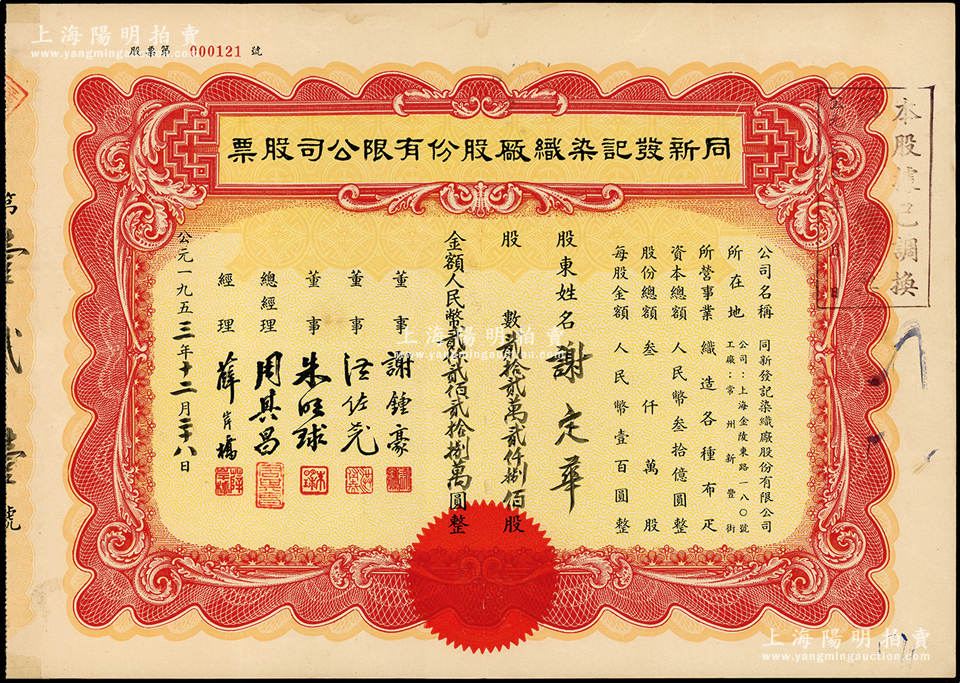 上海陽明拍賣
www.yangmingauction.com
股票第 000121 號
同新發記染織廠股份有限公司股票
本股據已調換
公司名稱 同新發記染織廠股份有限公司
所在地 公司:上海金陵東路一八〇號
工廠:常州新豐街
所營事業 織造各種布疋
資本總額 人民幣叁拾億圓整
股份總額 叁仟萬股
每股金額 人民幣壹百圓整
股東姓名 謝定華
股數 貳拾貳萬貳仟捌佰股
金額人民幣貳仟貳佰貳拾捌萬圓整
董事 謝鍾豪
董事
董事 朱旺球
總經理 周其昌
經理 薛岸橋
公元一九五三年十二月二十八日
第 號
上海陽明拍賣
www.yangmingauction.com
上海陽明拍賣
www.yangmingauction.com